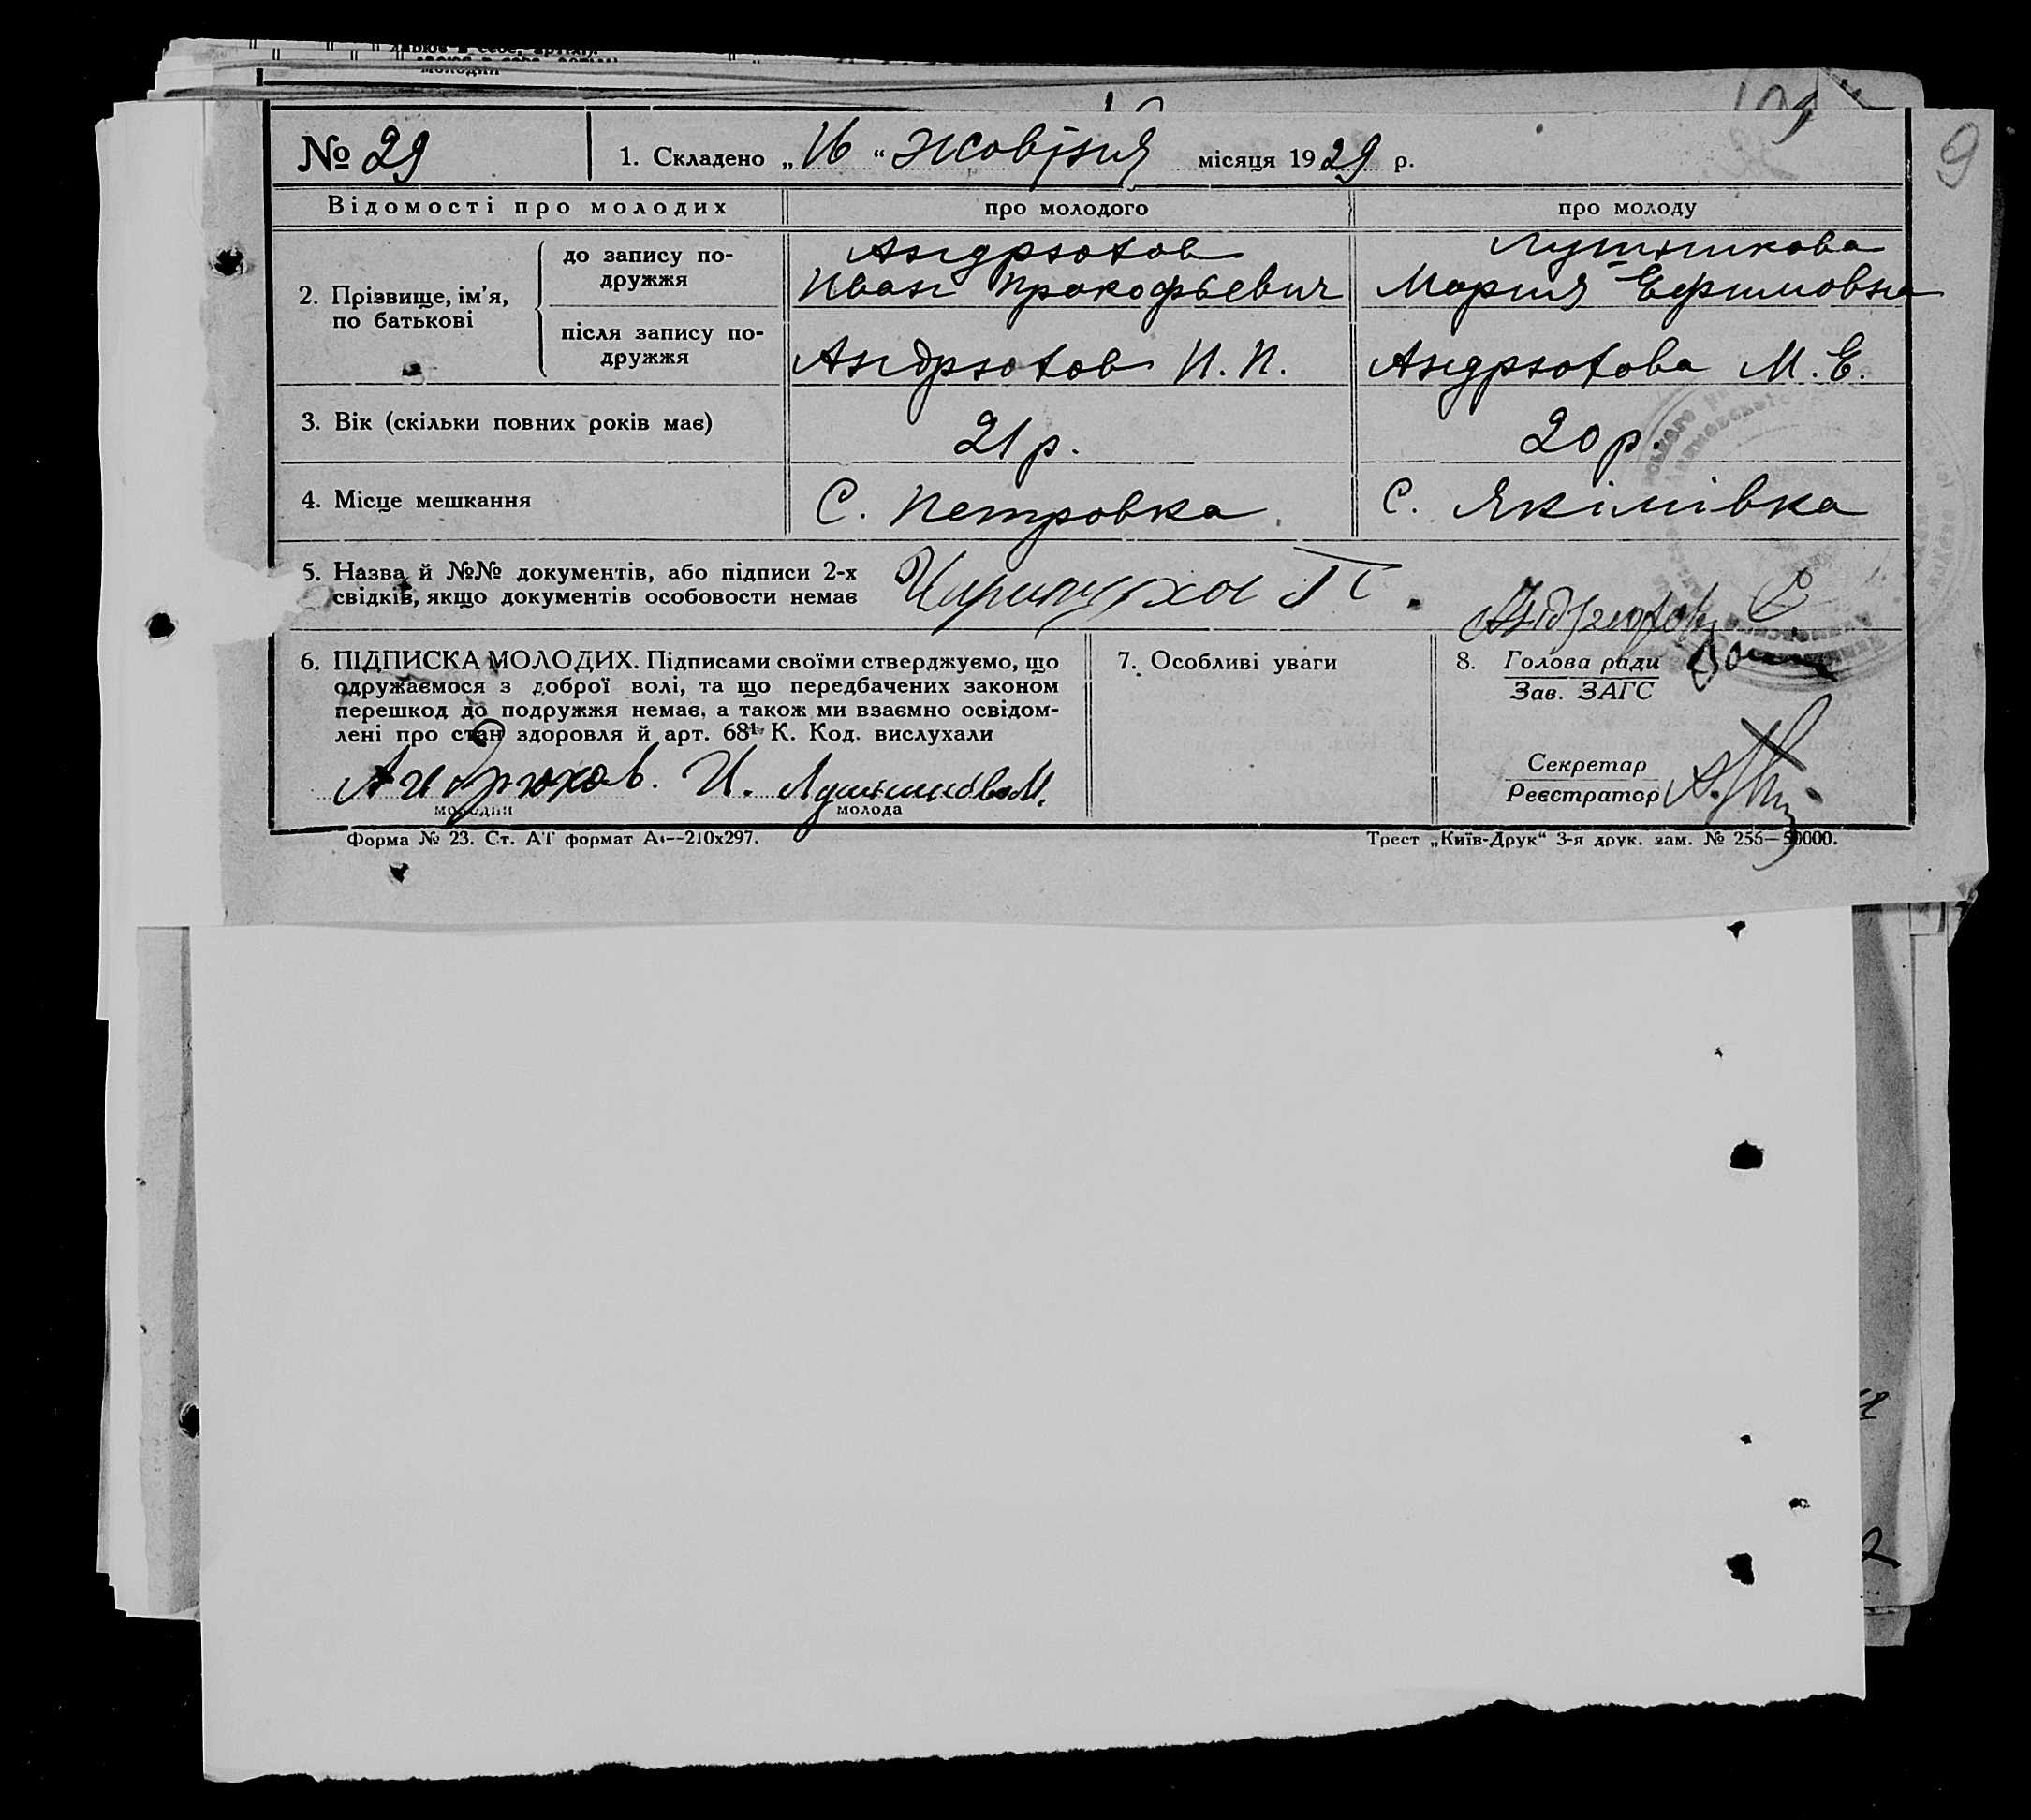 № 29
1. Складено „16“ жовтня місяця 1929 р.
9
Відомості про молодих
про молодого
про молоду
2. Прізвище, ім’я, по батькові
до запису по-
дружжя
Андрюхов
Иван Прокофьевич
Мария Ефимовна
після запису по-
дружжя
Андрюхов И. П.
Андрюхова М. Е.
3. Вік (скільки повних років має)
21 р.
20 р.
4. Місце мешкання
С. Петровка
С. Якімівка
5. Назва й №№ документів, або підписи 2-х
свідків, якщо документів особовости немає
Андрюхов
6. ПІДПИСКА МОЛОДИХ. Підписами своїми стверджуємо, що
одружаємося з доброї волі, та що передбачених законом
перешкод до подружжя немає, а також ми взаємно освідом-
лені про стан здоровля й арт. 68¹ К. Код. вислухали
Андрюхов. И.
молодий
молода
7. Особливі уваги
8. Голова ради
Зав. ЗАГС
Секретар
Реєстратор
Форма № 23. Ст. АТ формат А4--210х297.
Трест „Київ-Друк“ 3-я друк. зам. № 255—50000.